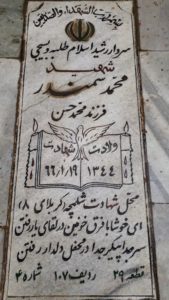 بسم رب الشهداء و الصدیقین
سردار رشید اسلام طلبه و بسیجی
شهید
محمد سمندر
فرزند محمدحسن
ولادت شهادت
۱۳۴۴ ۶۶/۱/۱۹
محل شهادت شلمچه کربلای ۸
ای خوشا با فرق خونین در لقای یار رفتن
سر جدا پیکر جدا در محفل دلدار رفتن
قطعه ۲۹ ردیف ۱۰۷ شماره ۴